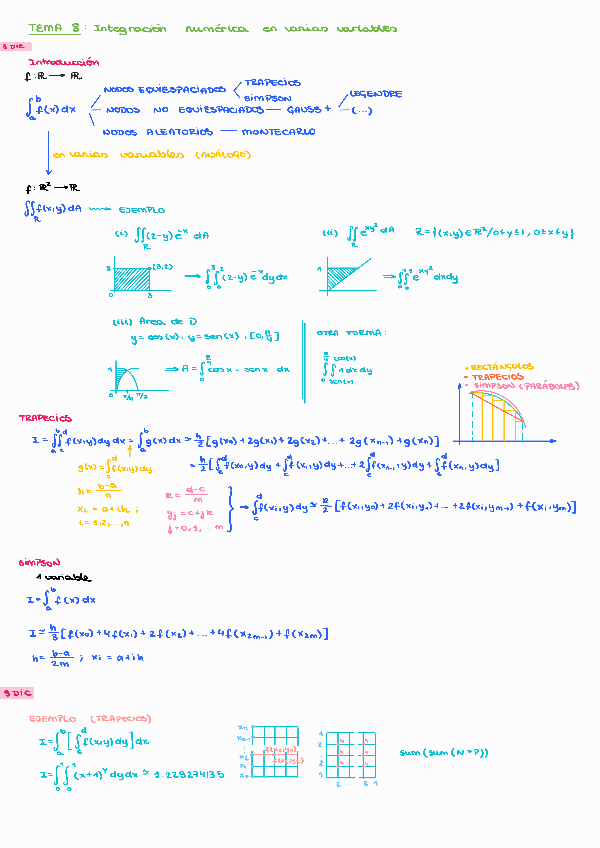 TEMA 8: Integración numérica en varias variables
8 DIC
Introducción
f: ℝ → ℝ
∫_a^b f(x)dx
NODOS EQUIESPACIADOS
TRAPECIOS
SIMPSON
NODOS NO EQUIESPACIADOS — GAUSS +
LEGENDRE
(...)
NODOS ALEATORIOS — MONTECARLO
en varias variables (ANÁLOGO)
f: ℝ² → ℝ
∬_R f(x,y)dA → EJEMPLO
(i) ∬_R (2-y)e^-x dA
(ii) ∬_R e^xy² dA R={(x,y)∈ℝ²/0≤y≤1, 0≤x≤y}
2 (3,2) 0 3
→ ∫_0^3∫_0^2 (2-y)e^-x dydx
1
⇒ ∫_0^1∫_0^y e^xy² dxdy
(iii) Area de D
y=cos(x), y=sen(x), [0,π/4]
1 0 π/4 π/2
⇒ A=∫_0^π/4 cosx - senx dx
OTRA FORMA:
∫_0^π/4 ∫_sen(x)^cos(x) 1 dxdy
- RECTÁNGULOS
- TRAPECIOS
- SIMPSON (PARÁBOLAS)
TRAPECIOS
I=∫_a^b∫_c^d f(x,y)dy dx = ∫_a^b g(x)dx ≃ h/2[g(x0)+2g(x1)+2g(x2)+...+2g(xn-1)+g(xn)]
g(x)=∫_c^d f(x,y)dy
= h/2[∫_c^d f(x0,y)dy+∫_c^d f(x1,y)dy+...+2∫_c^d f(xn-1,y)dy+∫_c^d f(xn,y)dy]
h= b-a/n
xi = a+ih;
i=1,2,...,n
k= d-c/m
yj=c+jk
j=0,1,...m
→ ∫_c^d f(xi,y)dy ≃ k/2[f(xi,y0)+2f(xi,y1)+...+2f(xi,ym-1)+f(xi,ym)]
SIMPSON
1 variable
I=∫_a^b f(x)dx
I≃h/3[f(x0)+4f(x1)+2f(x2)+...+4f(x2m-1)+f(x2m)]
h= b-a/2m ; xi=a+ih
9 DIC
EJEMPLO (TRAPECIOS)
I=∫_a^b[∫_c^d f(x,y)dy]dx
I=∫_0^1∫_0^1 (x+1)^y dydx ≃ 1.229274135
sum(sum(N*P))